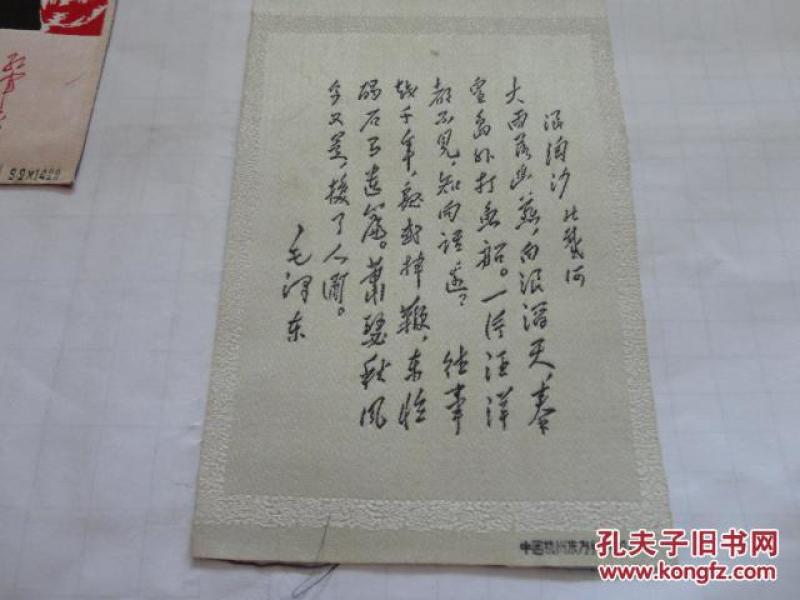 浪淘沙 北戴河
大雨落幽燕，白浪滔天，秦
皇岛外打鱼船。一片汪洋
都不见，知向谁边？ 往事
越千年，魏武挥鞭，东临
碣石有遗篇。萧瑟秋风
今又是，换了人间。
毛泽东
中国杭州东方
孔夫子旧书网
www.kongfz.com